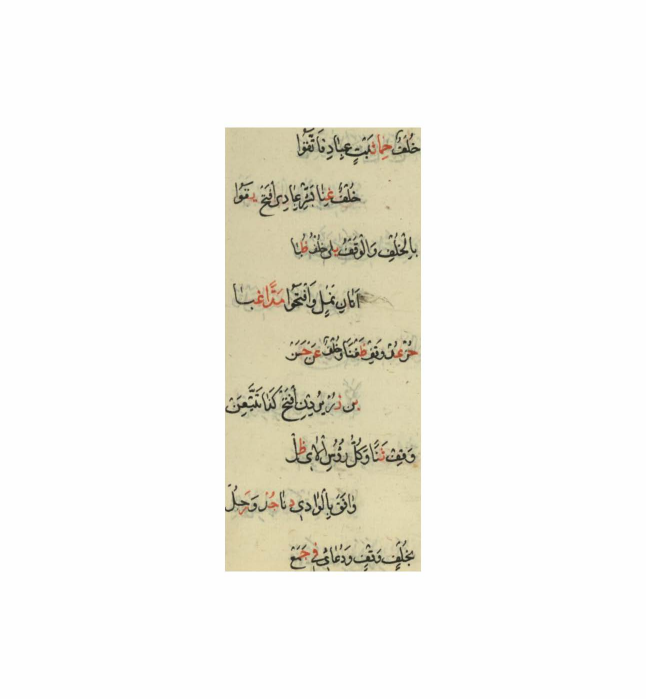 خُلْفٌ حِمًا ثَبْتٍ عِبَادِ فَاتَّقُوا
خُلْفٌ غِنًا بَشِّرْ عِبَادِي افْتَحْ يَقُوا
بِالْخُلْفِ وَالْوَقْفُ يَلِي خُلْفٌ ظُبَا
آتَانِ نَمْلٍ وَافْتَحُوا مَدًّا غَبَا
حُزْ عُدْ وَقِفْ ظَعْنًا وَخُلْفٌ عَنْ حَسَنْ
بِنْ زُرْ يُرِدْنِ افْتَحْ كَذَا تَتَّبِعَنْ
وَقِفْ ثَنًا وَكُلُّ رُؤْسِ الْآيِ ظَلْ
وَافَقَ بِالْوَادِي دَنَا جُدْ وَزُحَلْ
بِخُلْفِ وَقْفٍ وَدُعَائِي فِي جَمَعْ